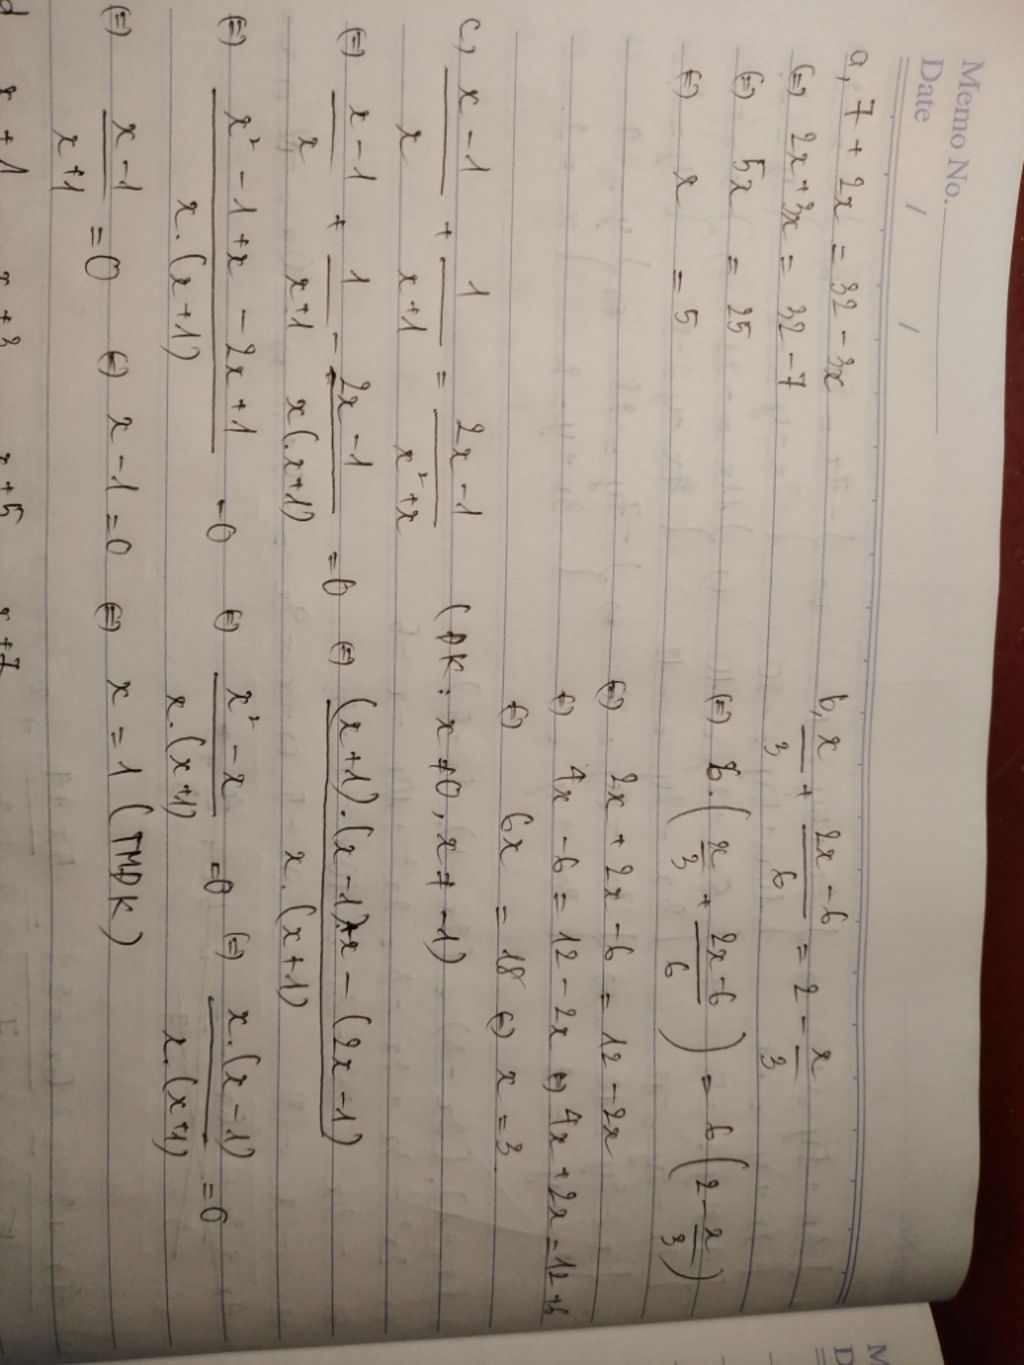 Memo No.
Date / /
a, 7 + 2x = 32 - 3x
(=) 2x + 3x = 32 - 7
(=) 5x = 25
(=) x = 5
b, x/3 + (2x - 6)/6 = 2 - x/3
(=) 6.(x/3 + (2x - 6)/6) = 6(2 - x/3)
(=) 2x + 2x - 6 = 12 - 2x
(=) 4x - 6 = 12 - 2x (=) 4x + 2x = 12 + 6
(=) 6x = 18 (=) x = 3
c, (x - 1)/x + 1/(x + 1) = (2x - 1)/(x² + x) (ĐK: x ≠ 0, x ≠ -1)
(=) (x - 1)/x + 1/(x + 1) - (2x - 1)/(x(x + 1)) = 0 (=) ((x + 1).(x - 1) + x - (2x - 1))/(x.(x + 1))
(=) (x² - 1 + x - 2x + 1)/(x.(x + 1)) = 0 (=) (x² - x)/(x.(x + 1)) = 0 (=) (x.(x - 1))/(x.(x + 1)) = 0
(=) (x - 1)/(x + 1) = 0 (=) x - 1 = 0 (=) x = 1 (TMĐK)
d x + 1 x + 3 x + 5 x + 7
M
D